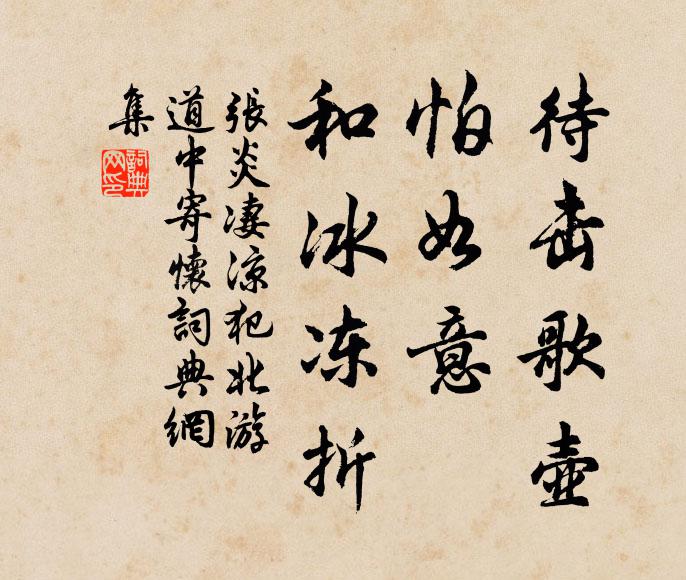 待击歌壶
怕如意
和冰冻折
張炎凄凉犯北游
道中寄懷詞典網
集
詞典
网印